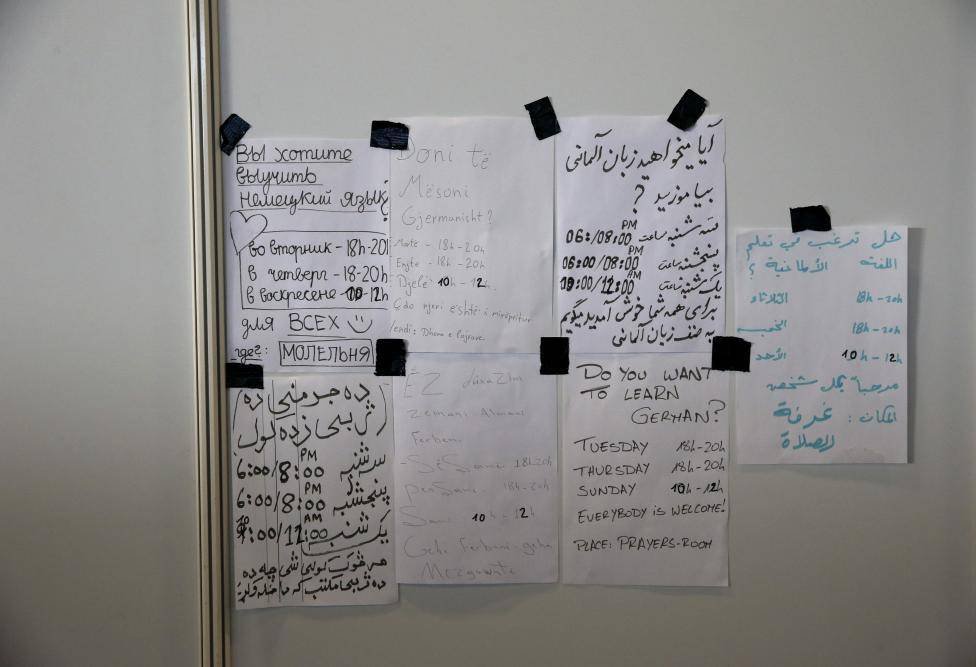 ВЫ хотите
выучить
немецкий язык?
во вторник - 18h-20h
в четверг - 18-20h
в воскресене - 10-12h
для ВСЕХ
где?: МОЛЕЛЬНЯ
Doni të
Mësoni
Gjermanisht?
Martë - 18h-20h
Enjte - 18h-20h
Djelë: 10h-12h.
Çdo njeri është i mirëpritur
Vendi: Dhoma e lutjeve.
آیا میخواهید زبان آلمانی
بیاموزید ?
سه شنبه ساعت 06:/08:00 PM
پنجشنبه ساعت 06:00/08:00 PM
یکشنبه ساعت 10:00/12:00 AM
برای همه شما خوش آمدید میگویم
به صنف زبان آلمانی
هل ترغب في تعلم
اللغة الألمانية ؟
الثلاثاء 18h-20h
الخميس 18h-20h
الأحد 10h-12h
مرحباً بكل شخص
المكان: غرفة
الصلاة
سه شنبه 6:00/8:00 PM
پنجشنبه 6:00/8:00 PM
یک شنبه 10:00/12:00 AM
EZ
Zemani Almani
Ferbeni
18h-20h
18h-20h
10h-12h
DO YOU WANT
TO LEARN
GERMAN?
TUESDAY 18h-20h
THURSDAY 18h-20h
SUNDAY 10h-12h
EVERYBODY IS WELCOME!
PLACE: PRAYERS-ROOM